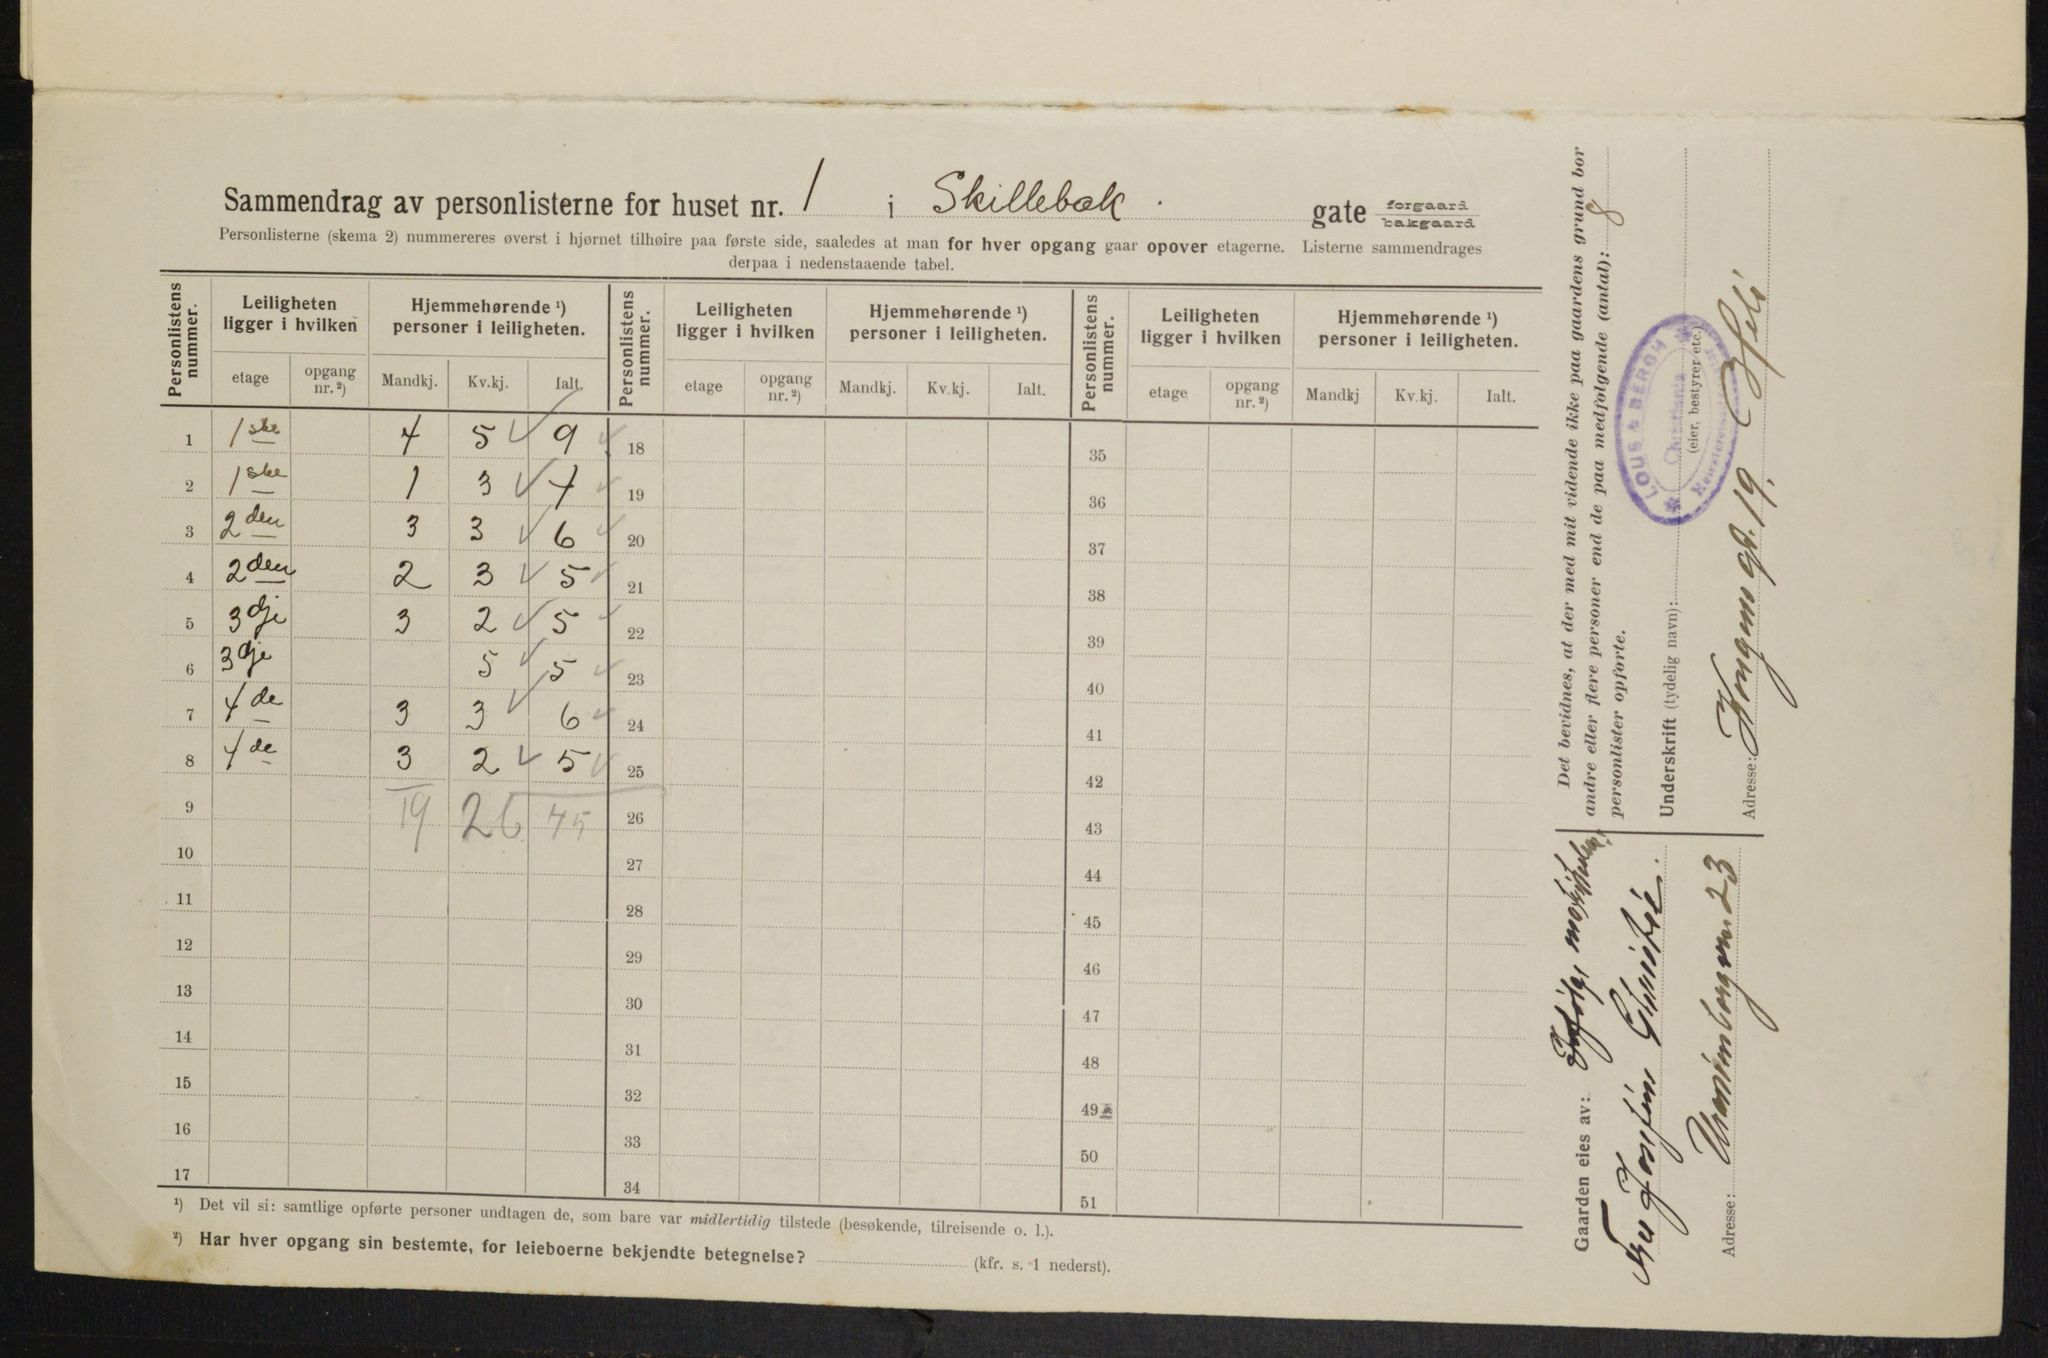 Sammendrag av personlisterne for huset nr. 1 i Skillebæk gate forgaard bakgaard
Personlisterne (skema 2) nummereres øverst i hjørnet tilhøire paa første side, saaledes at man for hver opgang gaar opover etagerne. Listerne sammendrages
derpaa i nedenstaaende tabel.
Personlistens nummer. Leiligheten ligger i hvilken Hjemmehørende ¹) personer i leiligheten. Personlistens nummer. Leiligheten ligger i hvilken Hjemmehørende ¹) personer i leiligheten. Personlistens nummer. Leiligheten ligger i hvilken Hjemmehørende ¹) personer i leiligheten.
etage opgang nr. ²) Mandkj. Kv.kj. Ialt. etage opgang nr. ²) Mandkj. Kv.kj. Ialt. etage opgang nr. ²) Mandkj Kv.kj. Ialt.
1 1ske 4 5 9 18 35
2 1ske 1 3 4 19 36
3 2den 3 3 6 20 37
4 2den 2 3 5 21 38
5 3dje 3 2 5 22 39
6 3dje 5 5 23 40
7 4de 3 3 6 24 41
8 4de 3 2 5 25 42
9 19 26 45 26 43
10 27 44
11 28 45
12 29 46
13 30 47
14 31 48
15 32 49
16 33 50
17 34 51
¹) Det vil si: samtlige opførte personer undtagen de, som bare var midlertidig tilstede (besøkende, tilreisende o. l.).
²) Har hver opgang sin bestemte, for leieboerne bekjendte betegnelse? (kfr. s. 1 nederst).
Det bevidnes, at der med mit vidende ikke paa gaardens grund bor
andre eller flere personer end de paa medfølgende (antal): 8
personlister opførte.
Underskrift (tydelig navn):
(eier, bestyrer etc.)
LOUS & BERGH
Christiania
Adresse: Kongens gt. 19.
Gaarden eies av:
Fru Josefin
Adresse: 23